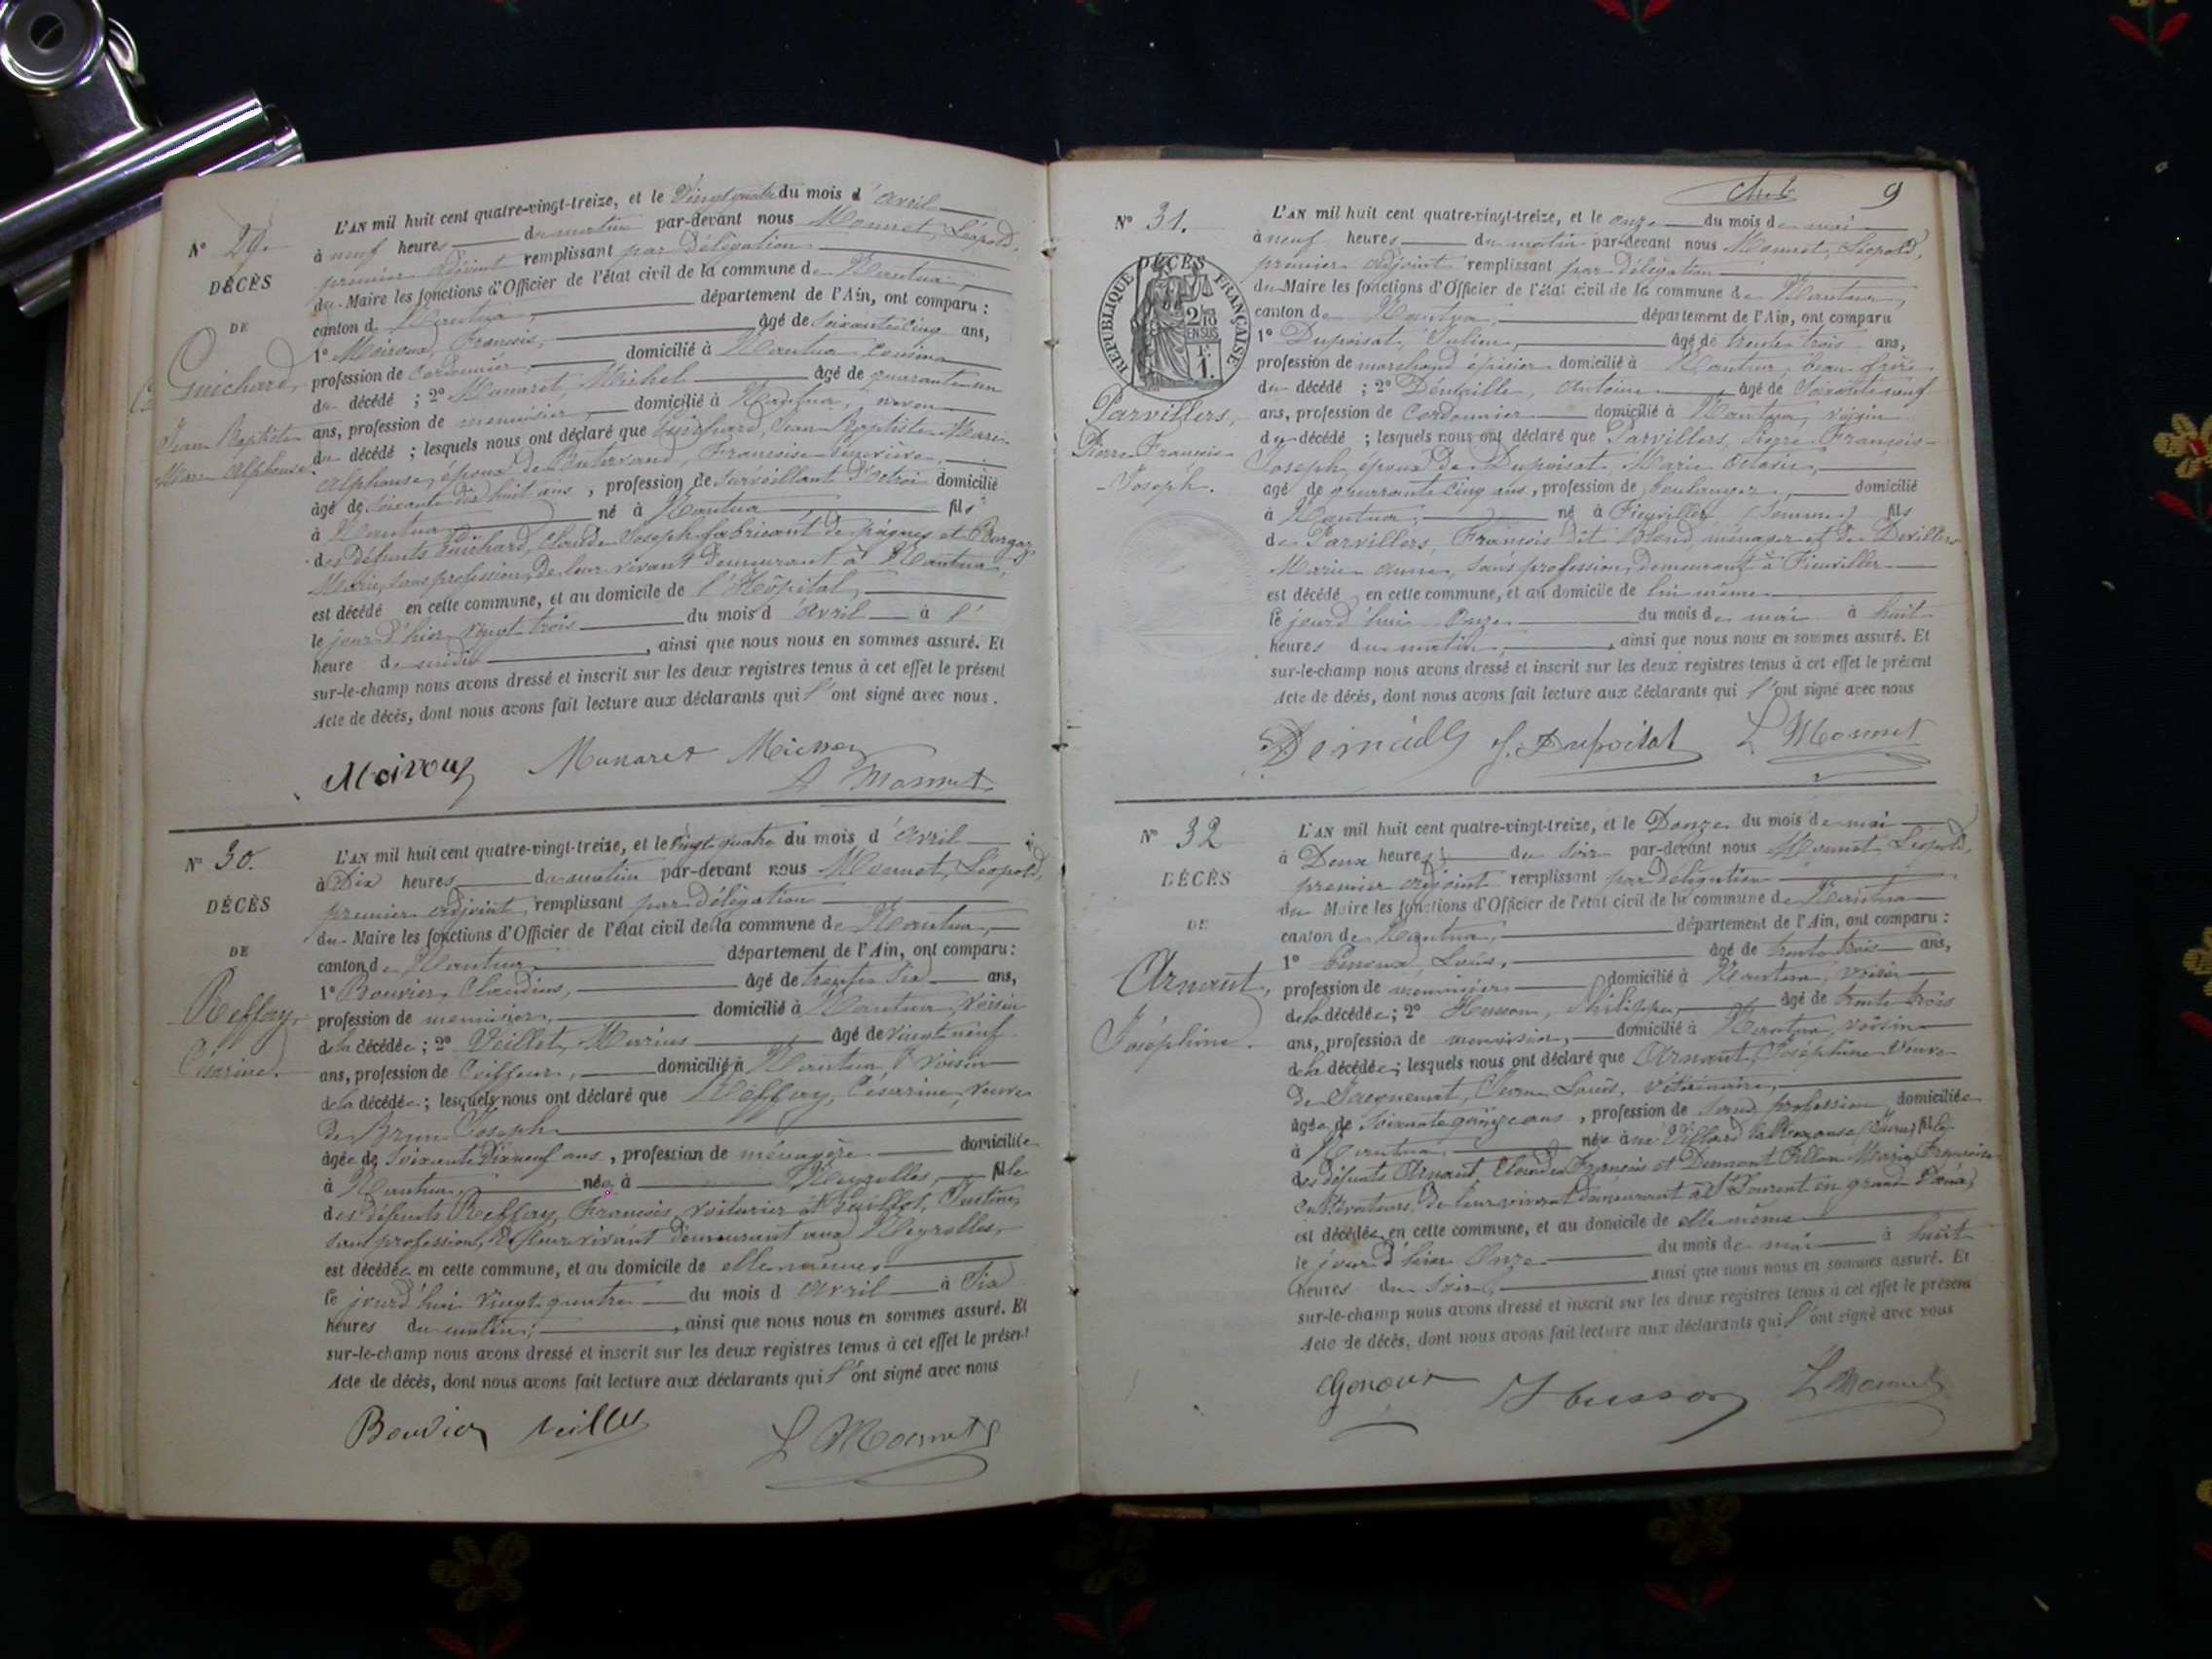 L'AN mil huit cent quatre-vingt-treize, et le Vingt quatre du mois d'avril
N° 29. à neuf heures du matin par-devant nous Monnet, Léopold,
premier adjoint remplissant par délégation
DÉCÈS du Maire les fonctions d'Officier de l'état civil de la commune de Nantua,
DE canton de Nantua, département de l'Ain, ont comparu :
1° Moiroud, François, âgé de soixante cinq ans,
Guichard, profession de Cordonnier, domicilié à Nantua, cousin
du décédé ; 2° Monaret, Michel âgé de quarante un
Jean Baptiste ans, profession de menuisier, domicilié à Nantua, neveu
Marie Alphonse. du décédé ; lesquels nous ont déclaré que Guichard, Jean Baptiste Marie
Alphonse, époux de Françoise
âgé de soixante dix huit ans, profession de surveillant d'octroi domicilié
à Nantua né à Nantua fils
des défunts Guichard, Claude Joseph fabricant de peignes et
Marie, sans profession, de leur vivant demeurant à Nantua,
est décédé en cette commune, et au domicile de l'Hôpital,
le jour d'hier vingt trois du mois d'avril à l'
heure de midi, ainsi que nous nous en sommes assuré. Et
sur-le-champ nous avons dressé et inscrit sur les deux registres tenus à cet effet le présent
Acte de décès, dont nous avons fait lecture aux déclarants qui l'ont signé avec nous.
Moiroud Monaret Michel
L Monnet
L'AN mil huit cent quatre-vingt-treize, et le vingt quatre du mois d'avril
N° 30. à Dix heures du matin par-devant nous Monnet, Léopold,
premier adjoint remplissant par délégation
DÉCÈS du Maire les fonctions d'Officier de l'état civil de la commune de Nantua,
DE canton de Nantua, département de l'Ain, ont comparu :
1° Bouvier, Claudius, âgé de trente six ans,
Reffay, profession de menuisier, domicilié à Nantua, voisin
de la décédée ; 2° Veillet, Marius âgé de vingt neuf
Césarine. ans, profession de Coiffeur, domicilié à Nantua, voisin
de la décédée ; lesquels nous ont déclaré que Reffay, Césarine, veuve
de Brun Joseph
âgée de soixante dix neuf ans, profession de ménagère domiciliée
à Nantua, née à Neyrolles, fille
des défunts Reffay, François, voiturier et Justine,
sans profession, de leur vivant demeurant aux Neyrolles,
est décédée en cette commune, et au domicile de elle même
le jourd'hui vingt quatre du mois d'avril à Six
heures du matin, ainsi que nous nous en sommes assuré. Et
sur-le-champ nous avons dressé et inscrit sur les deux registres tenus à cet effet le présent
Acte de décès, dont nous avons fait lecture aux déclarants qui l'ont signé avec nous
Bouvier Veillet L Monnet
9
L'AN mil huit cent quatre-vingt-treize, et le onze du mois de mai
N° 31. à neuf heures du matin par-devant nous Monnet, Léopold,
premier adjoint remplissant par délégation
DÉCÈS du Maire les fonctions d'Officier de l'état civil de la commune de Nantua,
RÉPUBLIQUE FRANÇAISE canton de Nantua, département de l'Ain, ont comparu
2/10 EN SUS 1° Dupoisat, Julien, âgé de trente trois ans,
1. profession de marchand épicier domicilié à Nantua, beau frère
du décédé ; 2° Antoine, âgé de Soixante neuf
Parvillers, ans, profession de Cordonnier domicilié à Nantua, voisin
du décédé ; lesquels nous ont déclaré que Parvillers, Pierre François
Pierre François Joseph, époux de Dupoisat, Marie Octavie,
Joseph. âgé de quarante cinq ans, profession de boulanger, domicilié
à Nantua, né à Fienvillers (Somme) fils
de Parvillers, François dit Blond, ménager et de Devillers
Marie Anne, sans profession, demeurant à Fienvillers
est décédé en cette commune, et au domicile de lui même
le jourd'hui Onze du mois de mai à huit
heures du matin, ainsi que nous nous en sommes assuré. Et
sur-le-champ nous avons dressé et inscrit sur les deux registres tenus à cet effet le présent
Acte de décès, dont nous avons fait lecture aux déclarants qui l'ont signé avec nous
J. Dupoisat L Monnet
L'AN mil huit cent quatre-vingt-treize, et le Douze du mois de mai
N° 32 à Deux heures du soir par-devant nous Monnet Léopold,
premier adjoint remplissant par délégation
DÉCÈS du Maire les fonctions d'Officier de l'état civil de la commune de Nantua
DE canton de Nantua, département de l'Ain, ont comparu :
1° Genoux, Louis, âgé de trente trois ans,
Arnaut, profession de menuisier domicilié à Nantua, voisin
de la décédée ; 2° Husson, Philippe, âgé de trente trois
Joséphine. ans, profession de menuisier, domicilié à Nantua, voisin
de la décédée ; lesquels nous ont déclaré que Arnaut, Joséphine Veuve
de Jacquemet, Jean Louis, vétérinaire,
âgée de soixante quinze ans, profession de sans profession domiciliée
à Nantua, née à Villard (Jura) fille
des défunts Arnaut Claude François et Marie Françoise
cultivateurs, de leur vivant demeurant à St Laurent en grand
est décédée en cette commune, et au domicile de elle même
le jour d'hier Onze du mois de mai à huit
heures du soir, ainsi que nous nous en sommes assuré. Et
sur-le-champ nous avons dressé et inscrit sur les deux registres tenus à cet effet le présent
Acte de décès, dont nous avons fait lecture aux déclarants qui l'ont signé avec nous
Genoux Husson L Monnet